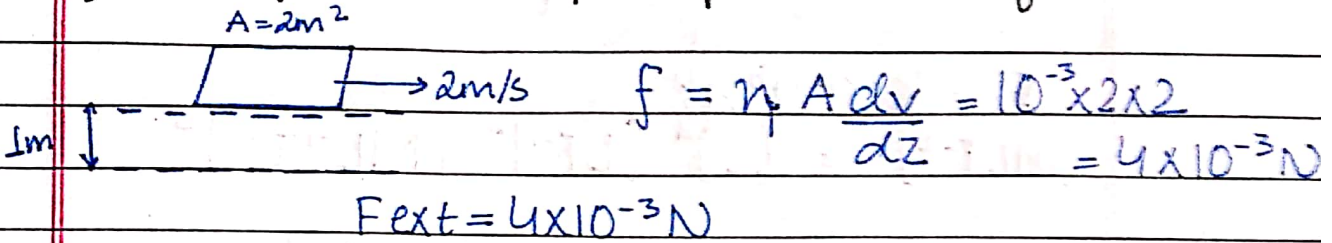 A=2m²
→2m/s
1m
f = η A dv/dz = 10⁻³×2×2
= 4×10⁻³N
Fext = 4×10⁻³N